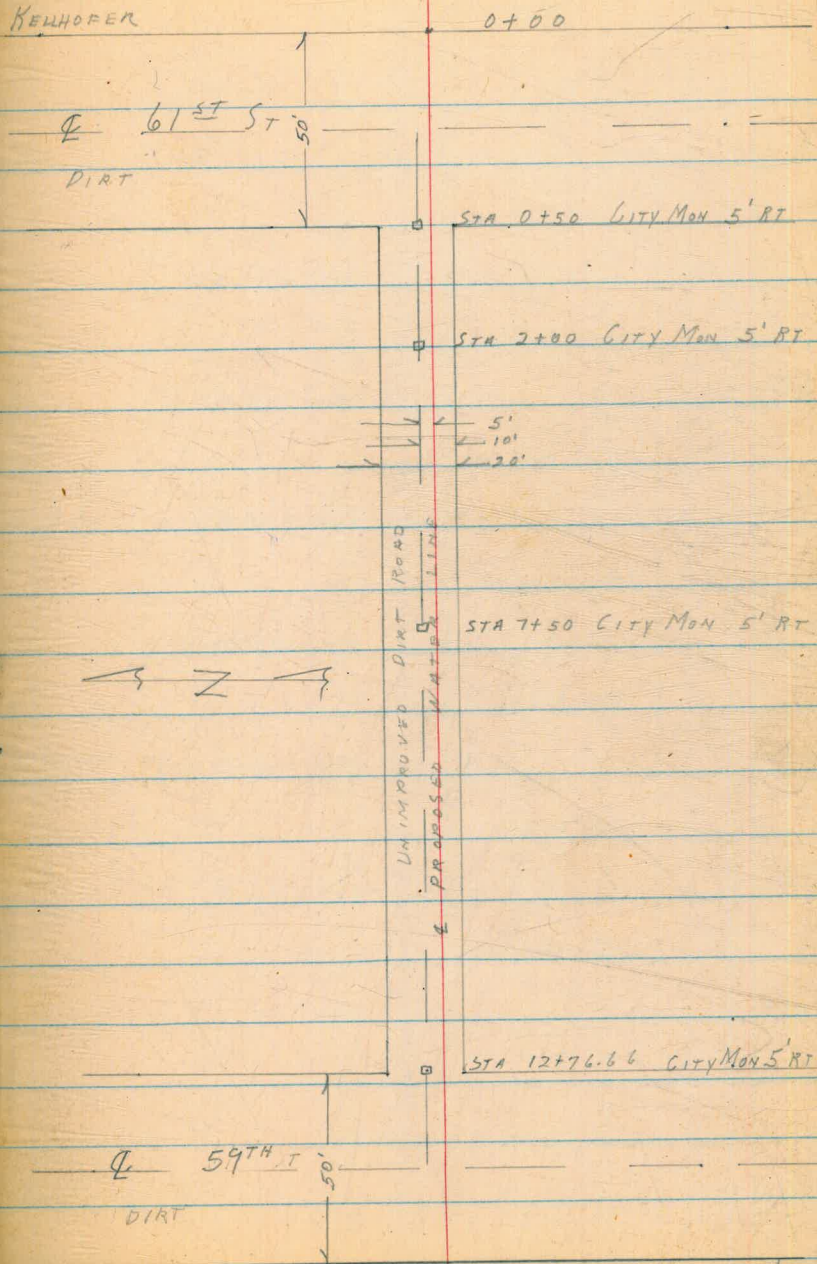 KELLHOFER 0+00
℄ 61ST ST
50'
DIRT
STA 0+50 CITY MON 5' RT
STA 2+00 CITY MON 5' RT
5'
10'
20'
UNIMPROVED DIRT ROAD
℄ PROPOSED WATER LINE
STA 7+50 CITY MON 5' RT
N
STA 12+76.66 CITY MON 5' RT
℄ 59TH T
50'
DIRT